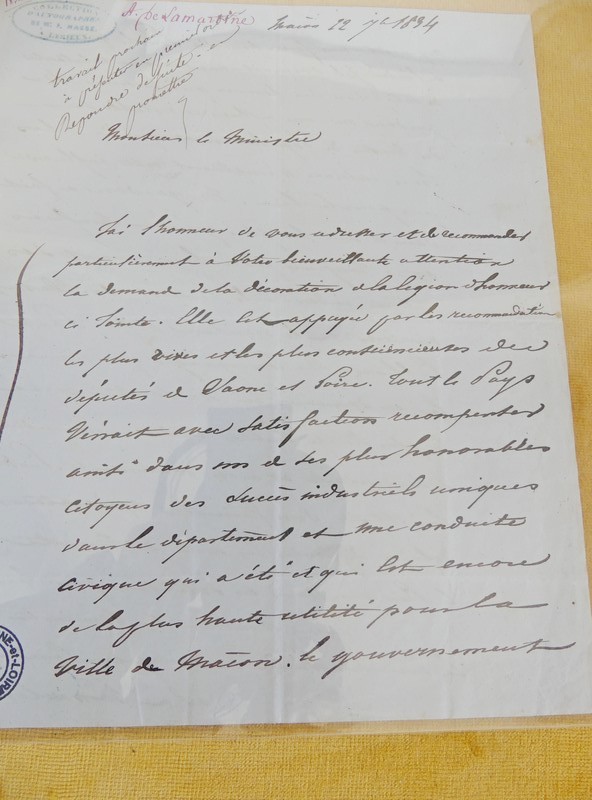 COLLECTION
D'AUTOGRAPHES
A. de Lamartine
Mâcon 22 1834
travail prochain
à présenter en premier
Répondre de suite
promettre
Monsieur le Ministre
J'ai l'honneur de vous adresser et de recommander
particulièrement à Votre bienveillante attention
la demande de la décoration de la légion d'honneur
ci jointe. Elle est appuyée par les recommandations
les plus vives et les plus consciencieuses des
députés de Saone et Loire. tout le Pays
verrait avec satisfaction récompenser
ainsi dans un de ses plus honorables
citoyens des succès industriels uniques
dans le département et une conduite
civique qui a été et qui est encore
de la plus haute utilité pour la
Ville de Mâcon. le gouvernement
NE-et-LOIRE